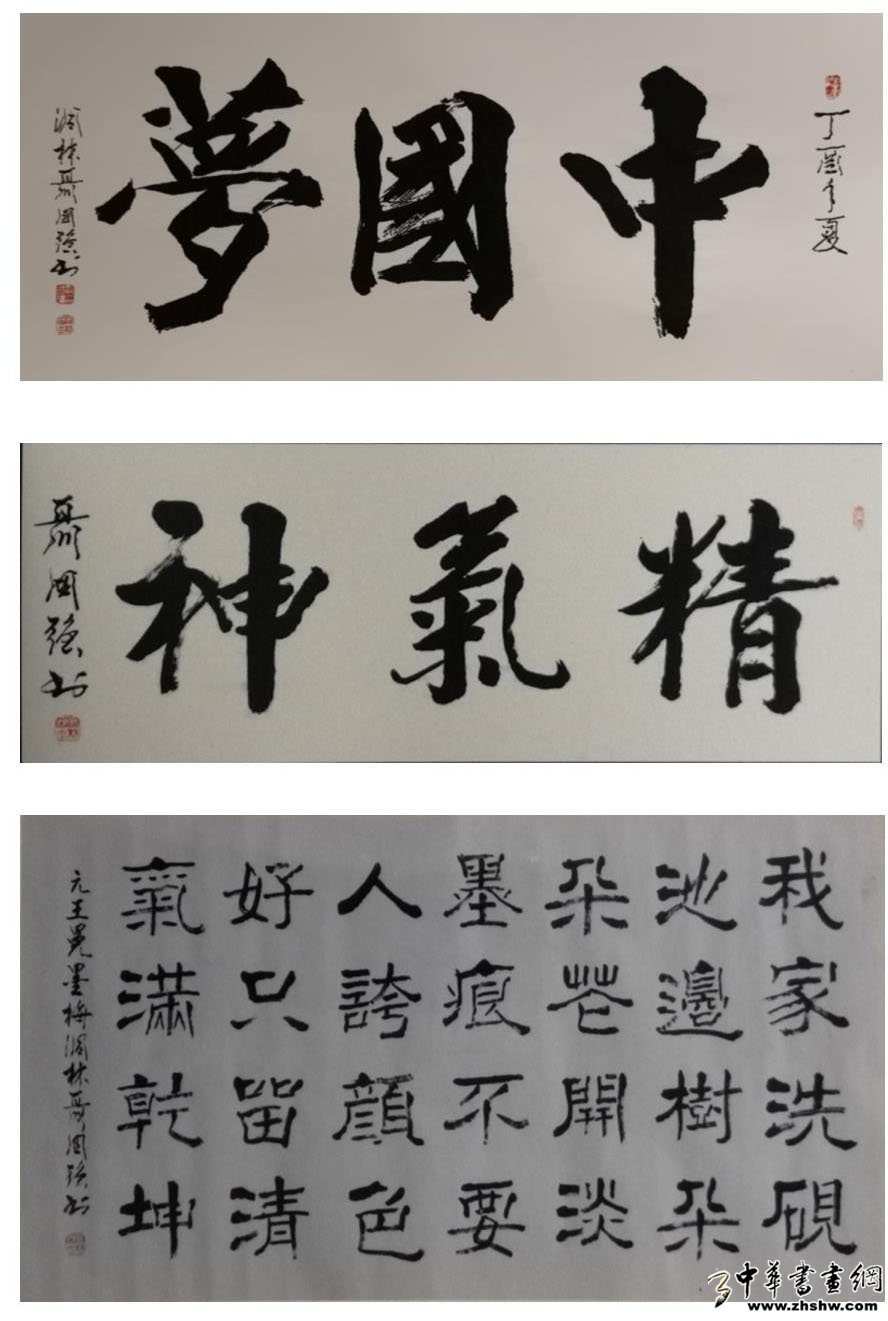 丁酉年夏
中國夢
林聶国強书
精氣神
聶国強书
我家洗硯
池邊樹朵
朵花開淡
墨痕不要
人誇顏色
好只留清
氣滿乾坤
元王冕墨梅林聶国強书
中華書畫網
www.zhshw.com